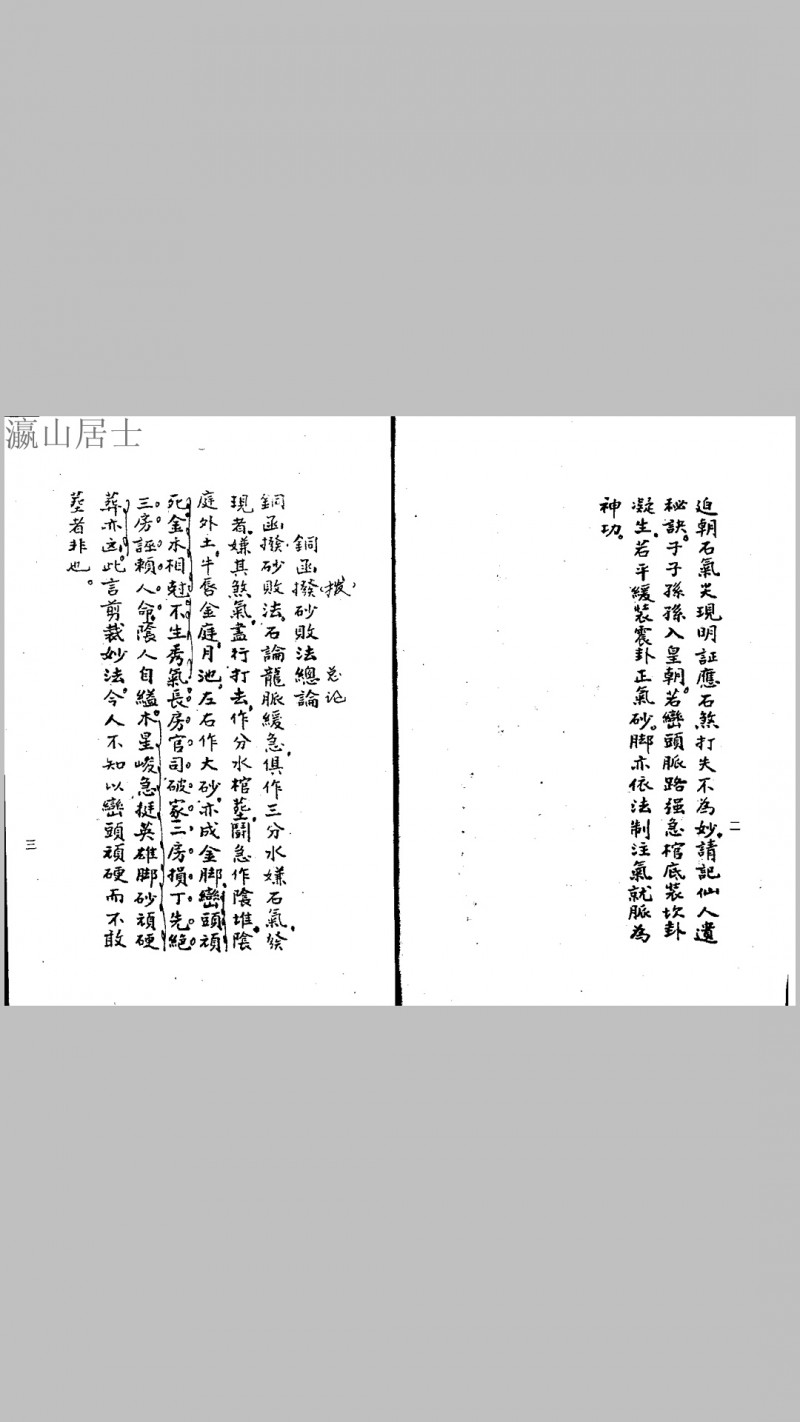 瀛山居士
迫朝石氣炎現明証應石煞打失不為妙。請記仙人遺
秘訣。子子孫孫入皇朝。若巒頭脈路强急棺底装坎卦
凝生。若平緩装震卦正氣砂。脚亦依法制注氣就脈為
神功。
二
拨 总论
銅函撥砂敗法總論
銅函撥砂敗法。石論龍脈緩急。俱作三分水嫌石氣發
現者。嫌其煞氣盡行打去。作分水棺塟。鬪急作陰堆陰
庭外土。牛唇金庭月池。左右作大砂。亦成金脚巒頭頑
死金木相尅。不生秀氣。長房官司破家二房損丁先絕
三房誣賴人命。蔭人自縊。木星峻急挺英雄脚砂頑硬
葬亦凶。此言剪裁妙法。今人不知以巒頭頑硬而不敢
塟者非也。
三